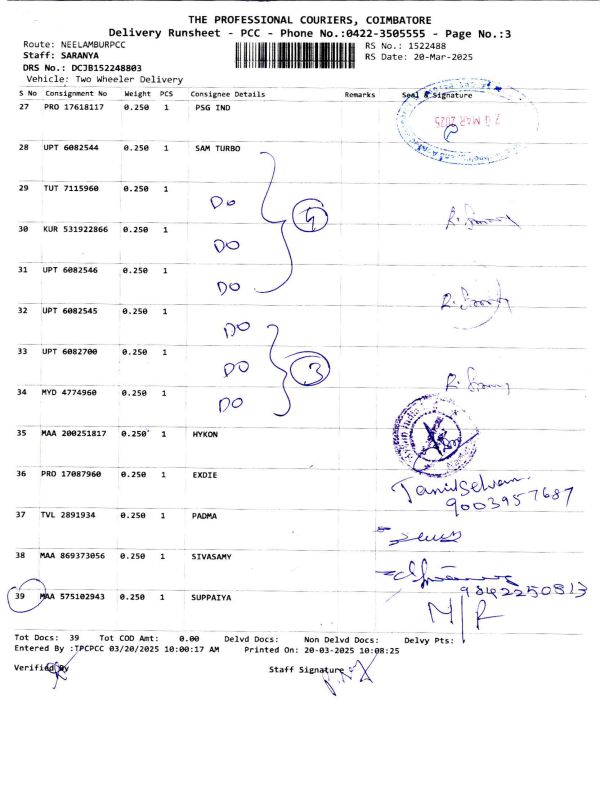 THE PROFESSIONAL COURIERS, COIMBATORE
Delivery Runsheet - PCC - Phone No.:0422-3505555 - Page No.:3
Route: NEELAMBURPCC RS No.: 1522488
Staff: SARANYA RS Date: 20-Mar-2025
DRS No.: DCJB152248803
Vehicle: Two Wheeler Delivery
S No Consignment No Weight PCS Consignee Details Remarks Seal & Signature
27 PRO 17618117 0.250 1 PSG IND
MAR 2025
28 UPT 6082544 0.250 1 SAM TURBO
29 TUT 7115960 0.250 1 DO
30 KUR 531922866 0.250 1 DO
31 UPT 6082546 0.250 1 DO
32 UPT 6082545 0.250 1 DO
33 UPT 6082700 0.250 1 DO 3
34 MYD 4774960 0.250 1 DO
35 MAA 200251817 0.250 1 HYKON
36 PRO 17087960 0.250 1 EXDIE
Tamilselvan
9003957687
37 TVL 2891934 0.250 1 PADMA
38 MAA 869373056 0.250 1 SIVASAMY
9842250813
39 MAA 575102943 0.250 1 SUPPAIYA
M/R
Tot Docs: 39 Tot COD Amt: 0.00 Delvd Docs: Non Delvd Docs: Delvy Pts:
Entered By :TPCPCC 03/20/2025 10:00:17 AM Printed On: 20-03-2025 10:08:25
Verified By Staff Signature